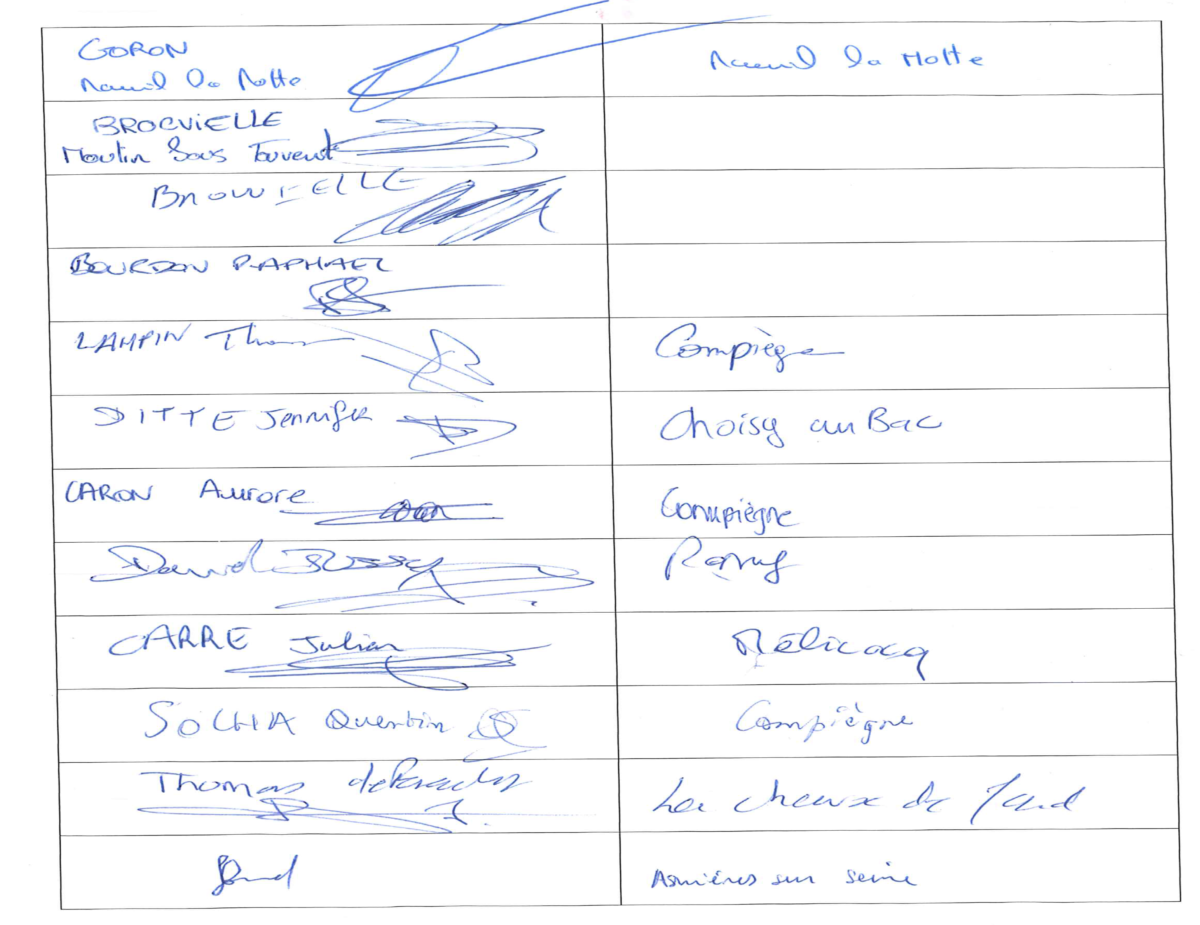 GORON
Mareuil la Motte
Mareuil la Motte
BROCVIELLE
Moulin Sous Touvent
BOURDON RAPHAEL
LAMPIN Thomas
Compiègne
DITTE Jennifer
Choisy au Bac
CARON Aurore
Compiègne
David BUSSY
CARRE Julien
Mélicocq
SOCHA Quentin
Compiègne
Thomas
La chaux de fond
Asnières sur seine